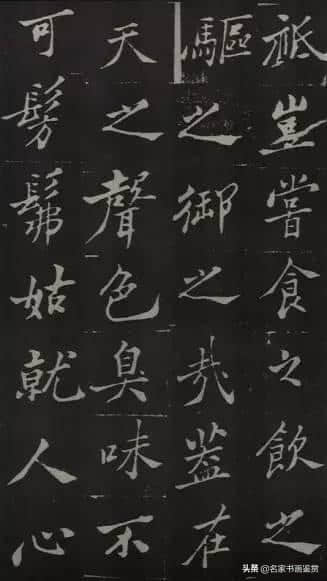 祗豈嘗食之飲之
驅之御之哉蓋在
天之聲色臭味不
可髣髴姑就人心
头条 @名家书画鉴赏